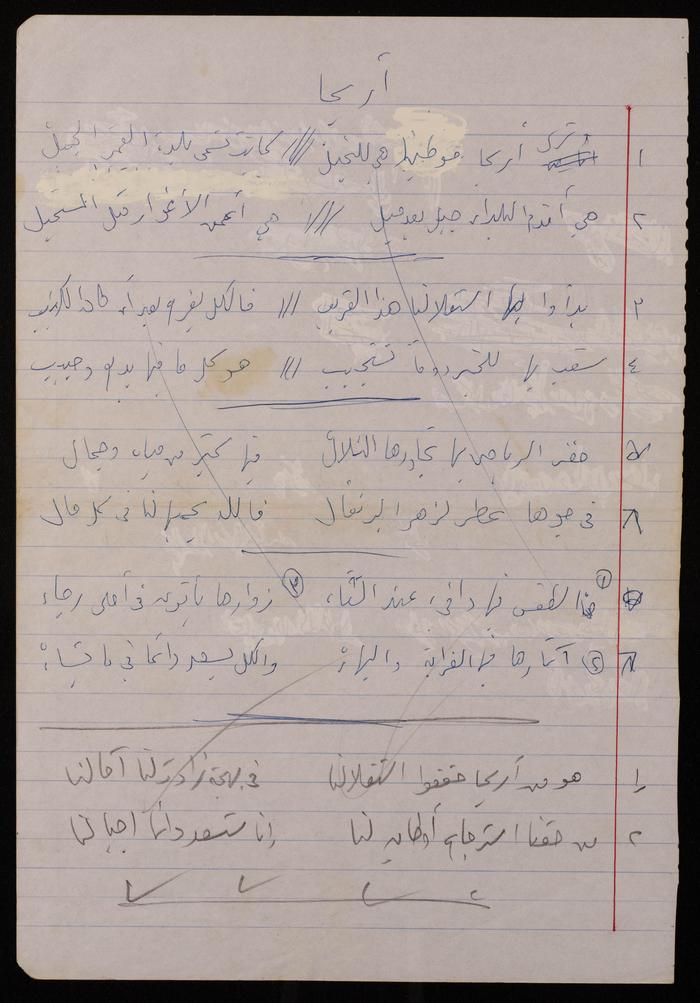 أريحا
١ وترى أريحا موطنها هي للنخيل /// كانت تسمى بلدة القمر الجميل
٢ هي أقدم البلدان جيل بعد جيل /// هي أعمق الأغوار قبل المستحيل
٣ بدأوا بها استقلالنا هذا القريب /// فالكل يفرح بعد أن كاد
٤ شعب بها للخير دوماً تستجيب /// هو كل ما فيها بديع وحبيب
خضر الرياض بها تجاورها التلال فيها كثير من مياه وجمال
في جوها عطر لزهر البرتقال فالله يحميها لنا في كل حال
① هذا الطقس فيها دافئ عند الشتاء ③ زوارها يأتون في أحلى رجاء
② آثارها فيها الغرابة والبهاء والكل يسعد دائما في ما يشاء
١ هو من أريحا حققوا استقلالنا في بهجة زادت لنا آمالنا
٢ من حقنا استرجاع أوطان لنا إنا سنسعد دائما أجيالنا